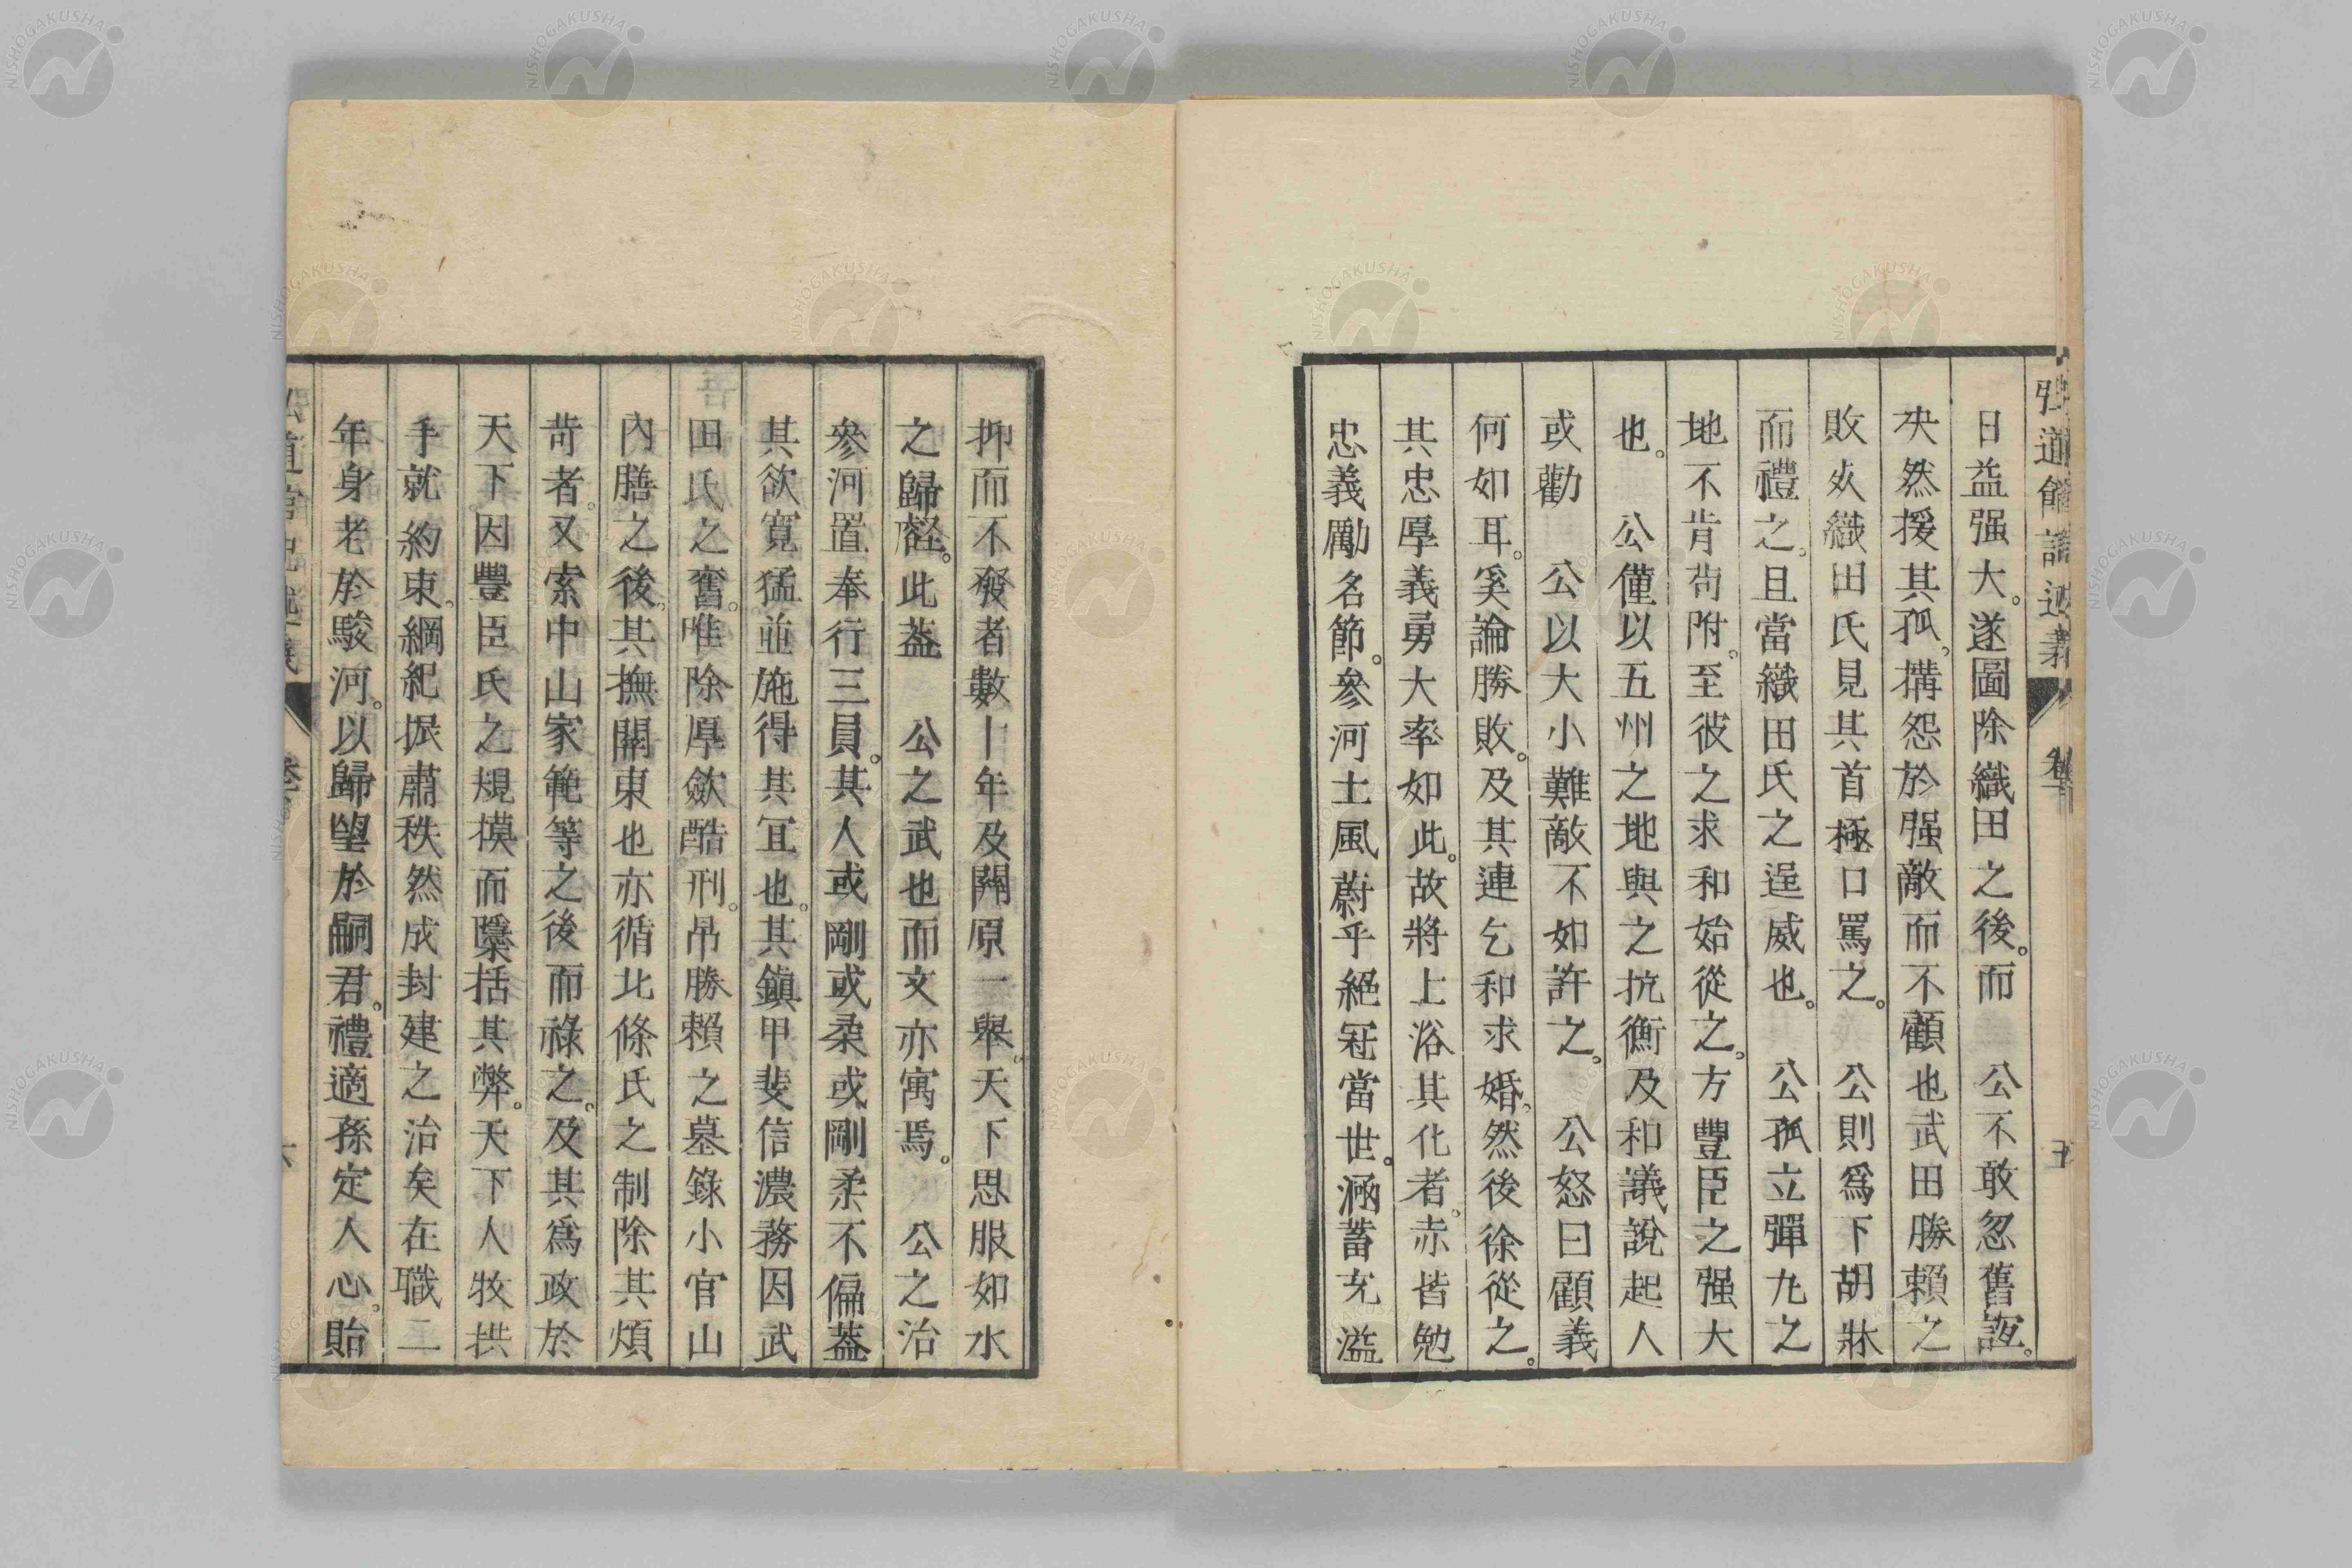 弘道館記述義 卷下 五
日益强大。遂圖除織田之後。而 公不敢忽舊誼。
决然援其孤。搆怨於强敵而不顧也武田勝賴之
敗灰織田氏見其首極口罵之。 公則爲下胡牀
而禮之。且當織田氏之逞威也。 公孤立彈丸之
地不肯苟附。至彼之求和始從之。方豐臣之强大
也。 公僅以五州之地與之抗衡及和議說起人
或勸 公以大小難敵不如許之。 公怒曰顧義
何如耳。奚論勝敗。及其連乞和求婚。然後徐從之。
其忠厚義勇大率如此。故將士浴其化者。亦皆勉
忠義勵名節。參河土風蔚乎絕冠當世。涵蓄充溢
抑而不發者數十年及關原一擧。天下思服如水
之歸壑。此葢 公之武也而文亦寓焉。 公之治
參河置奉行三員。其人或剛或柔或剛柔不偏葢
其欲寬猛並施得其宜也。其鎭甲斐信濃務因武
田氏之舊。唯除厚斂酷刑。弔勝賴之墓錄小官山
內膳之後。其撫關東也亦循北條氏之制除其煩
苛者。又索中山家範等之後而祿之。及其爲政於
天下。因豐臣氏之規摸而檃括其弊。天下人牧拱
手就約束。綱紀振肅秩然成封建之治矣在職二
年身老於駿河。以歸望於嗣君。禮適孫定人心。貽
弘道館記述義 卷下 六
NISHOGAKUSHA